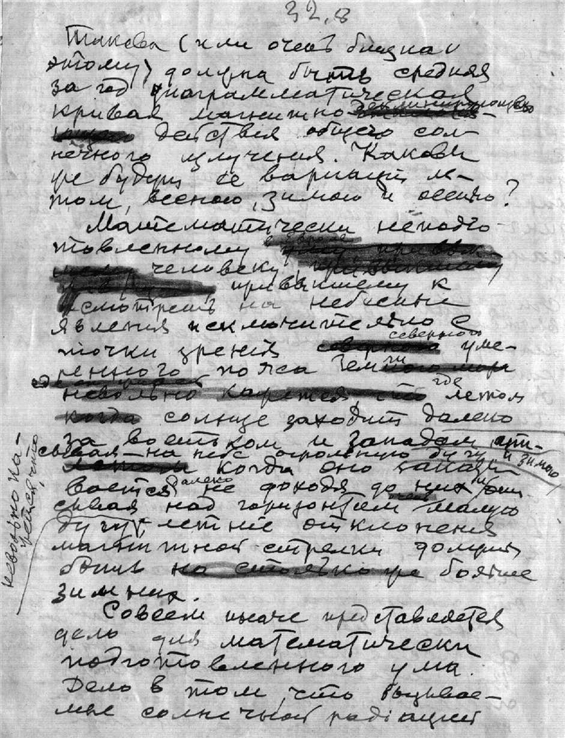 32.8
Такова (или очень близка к
этому) должна быть средняя
за год диаграмматическая
кривая магнитно-деклинирующего
действия общего сол-
нечного излучения. Каковы
же будут её варианты ле-
том, весною, зимою и осенью?
Математически неподго-
товленному
человеку, привыкшему к
смотреть на небесные
явления исключительно с
точки зрения северного уме-
ренного пояса Земли, где летом
солнце заходит далеко
за востоком и западом, опи-
сывая на небе огромную дугу, и зимою
когда оно
далеко не доходя до них и опи-
сывая над горизонтом малую
дугу, летние отклонения
магнитной стрелки должны
быть больше
зимних.
невольно ка-
жется, что
Совсем иначе представляется
дело для математически
подготовленного ума.
Дело в том, что вызывае-
мые солнечной радиацией